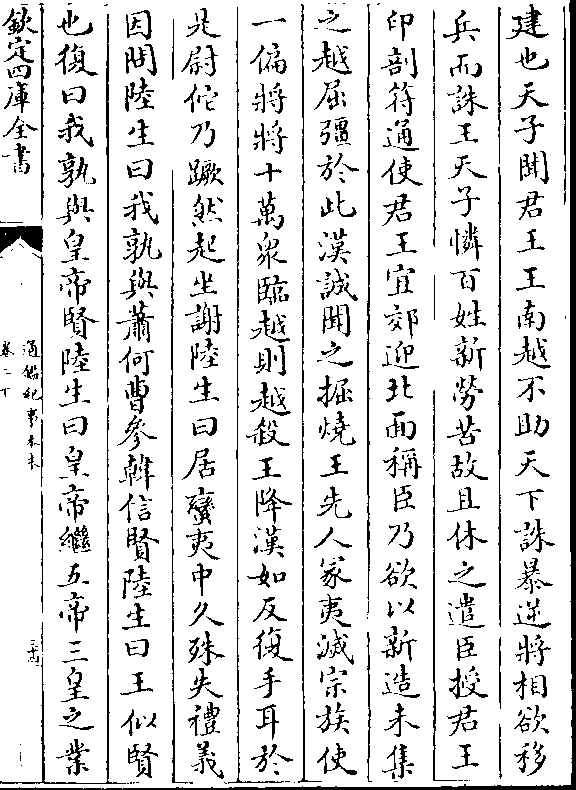 建也天子聞君王王南越不助天下誅暴逆將相欲移
兵而誅王天子憐百姓新勞苦故且休之遣臣授君王
印剖符通使君王宜郊迎北面稱臣乃欲以新造未集
之越屈彊於此漢誠聞之掘燒王先人冢夷滅宗族使
一偏將將十萬衆臨越則越殺王降漢如反復手耳於
是尉佗乃蹶然起坐謝陸生曰居蠻夷中久殊失禮義
因問陸生曰我孰與蕭何曹參韓信賢陸生曰王似賢
也復曰我孰與皇帝賢陸生曰皇帝繼五帝三皇之業
欽定四庫全書
通鑑紀事本末
卷二下